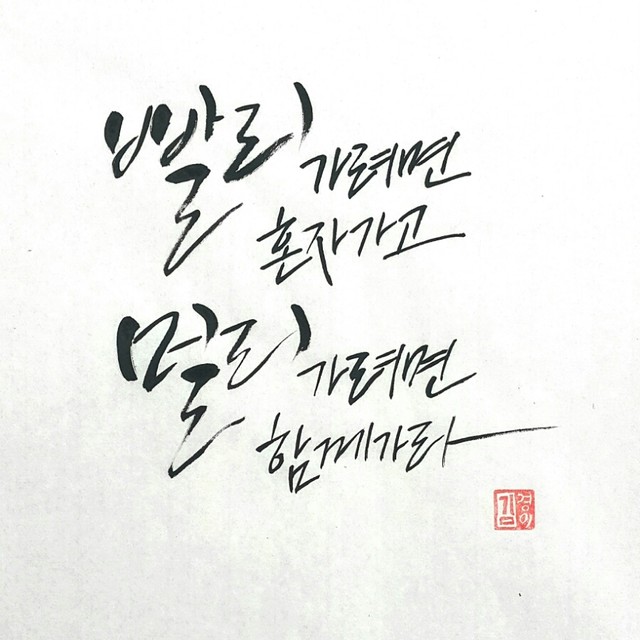 빨리 가려면
혼자가고
멀리 가려면
함께가라